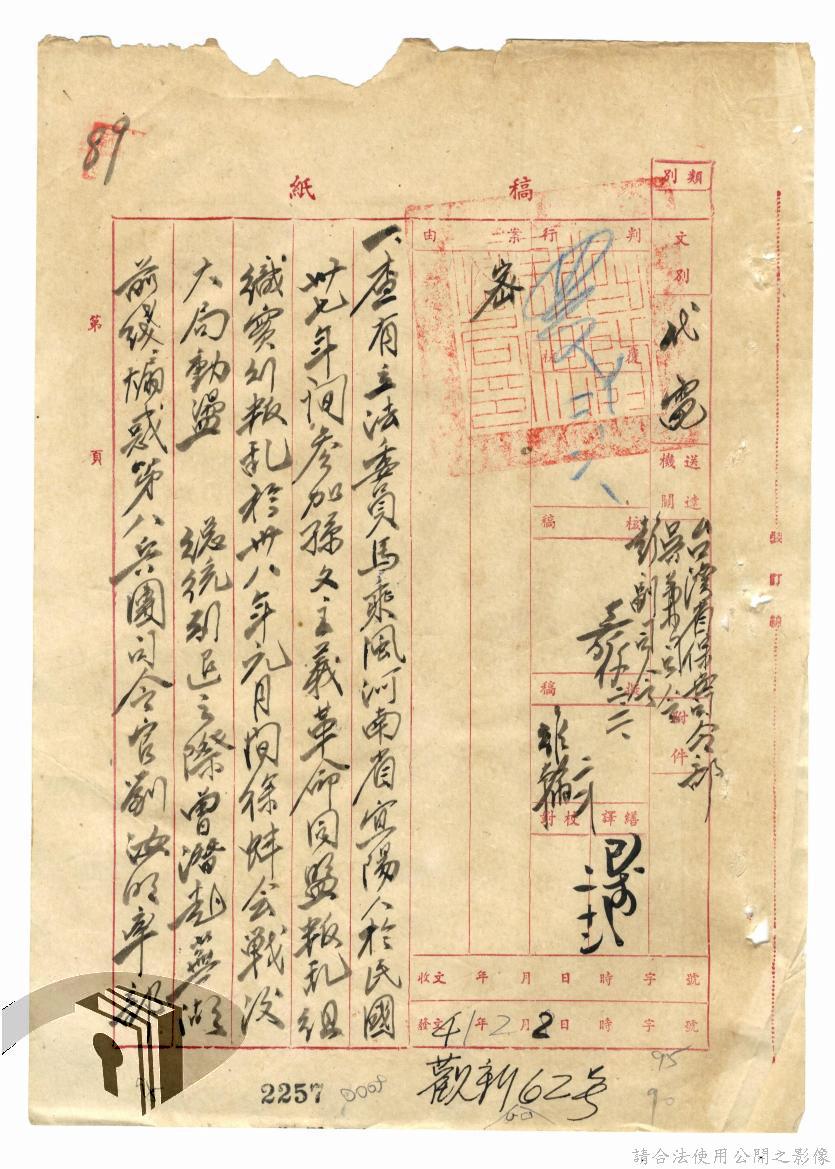 稿紙
類別
文別
代電
送達機關
台灣省保安司令部
吳兼司令
彭副司令
附件
判行
案由
密
覆核
核稿
擬稿
繕譯
校對
收文 年 月 日 時 字 號
發文 41年2月2日 時 字 號
觀新62号
一、查有立法委員馬乘風河南省宜陽人於民國
卅七年間參加孫文主義革命同盟叛乱組
織實行叛乱於卅八年元月間徐蚌会戰後
大局動盪 總統引退之際曾潛赴蕪湖
前綫煽惑第八兵團司令官劉汝明率部
第 頁
裝訂線
89
2257
95
90
請合法使用公開之影像